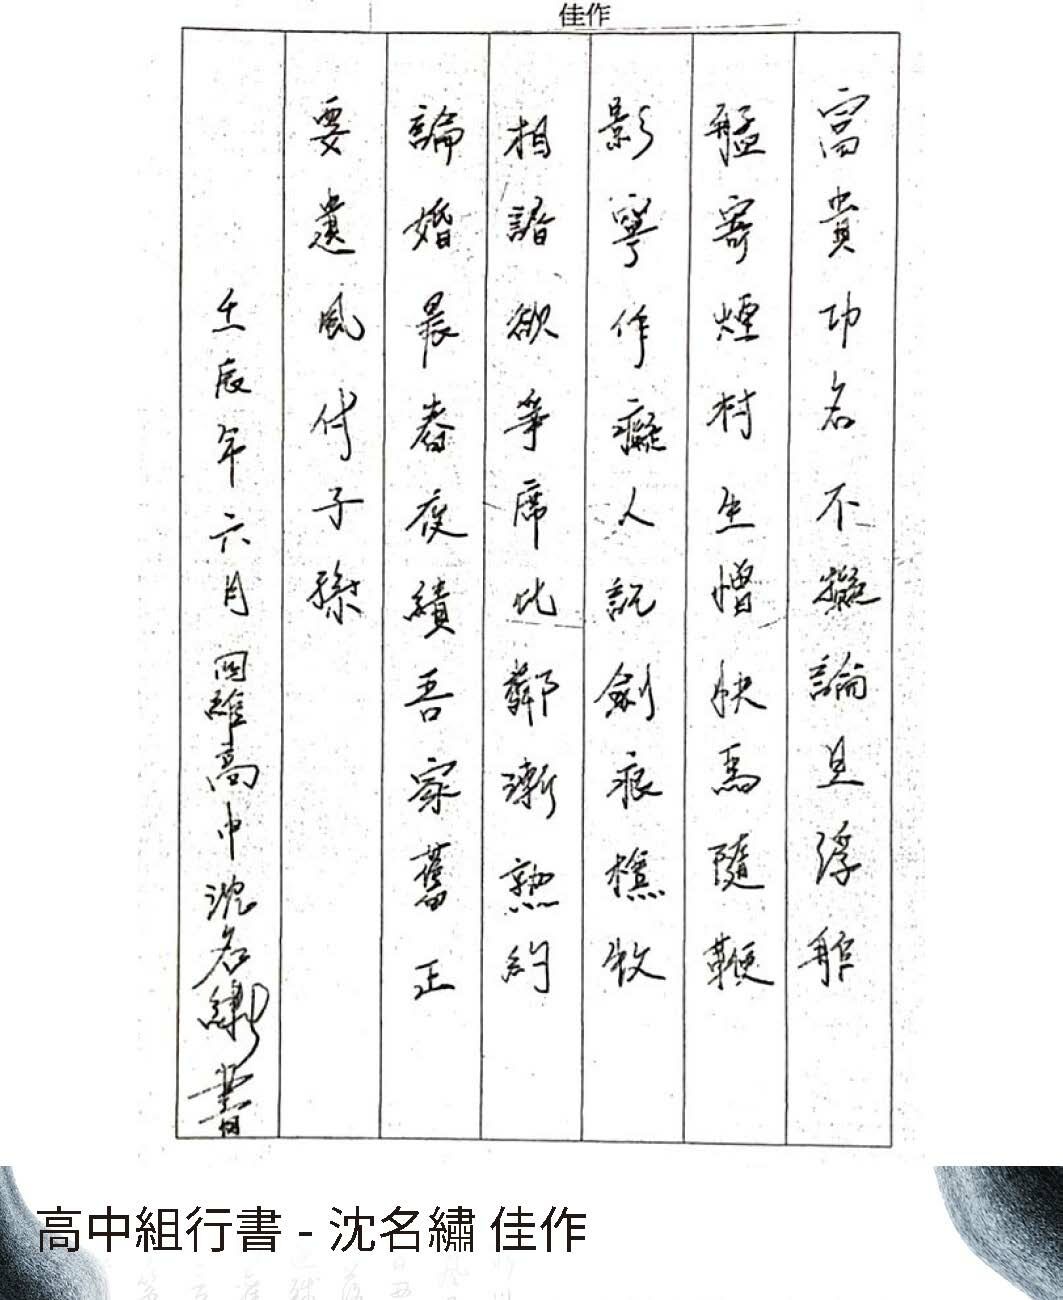 佳作
富貴功名不擬論且浮舴
艋寄煙村生憎快馬隨鞭
影寧作癡人記劍痕樵牧
相諳欲爭席比鄰漸熟約
論婚晨舂夜績吾家舊正
要遺風付子孫
壬辰年六月四維高中沈名繡書
高中組行書 - 沈名繡 佳作